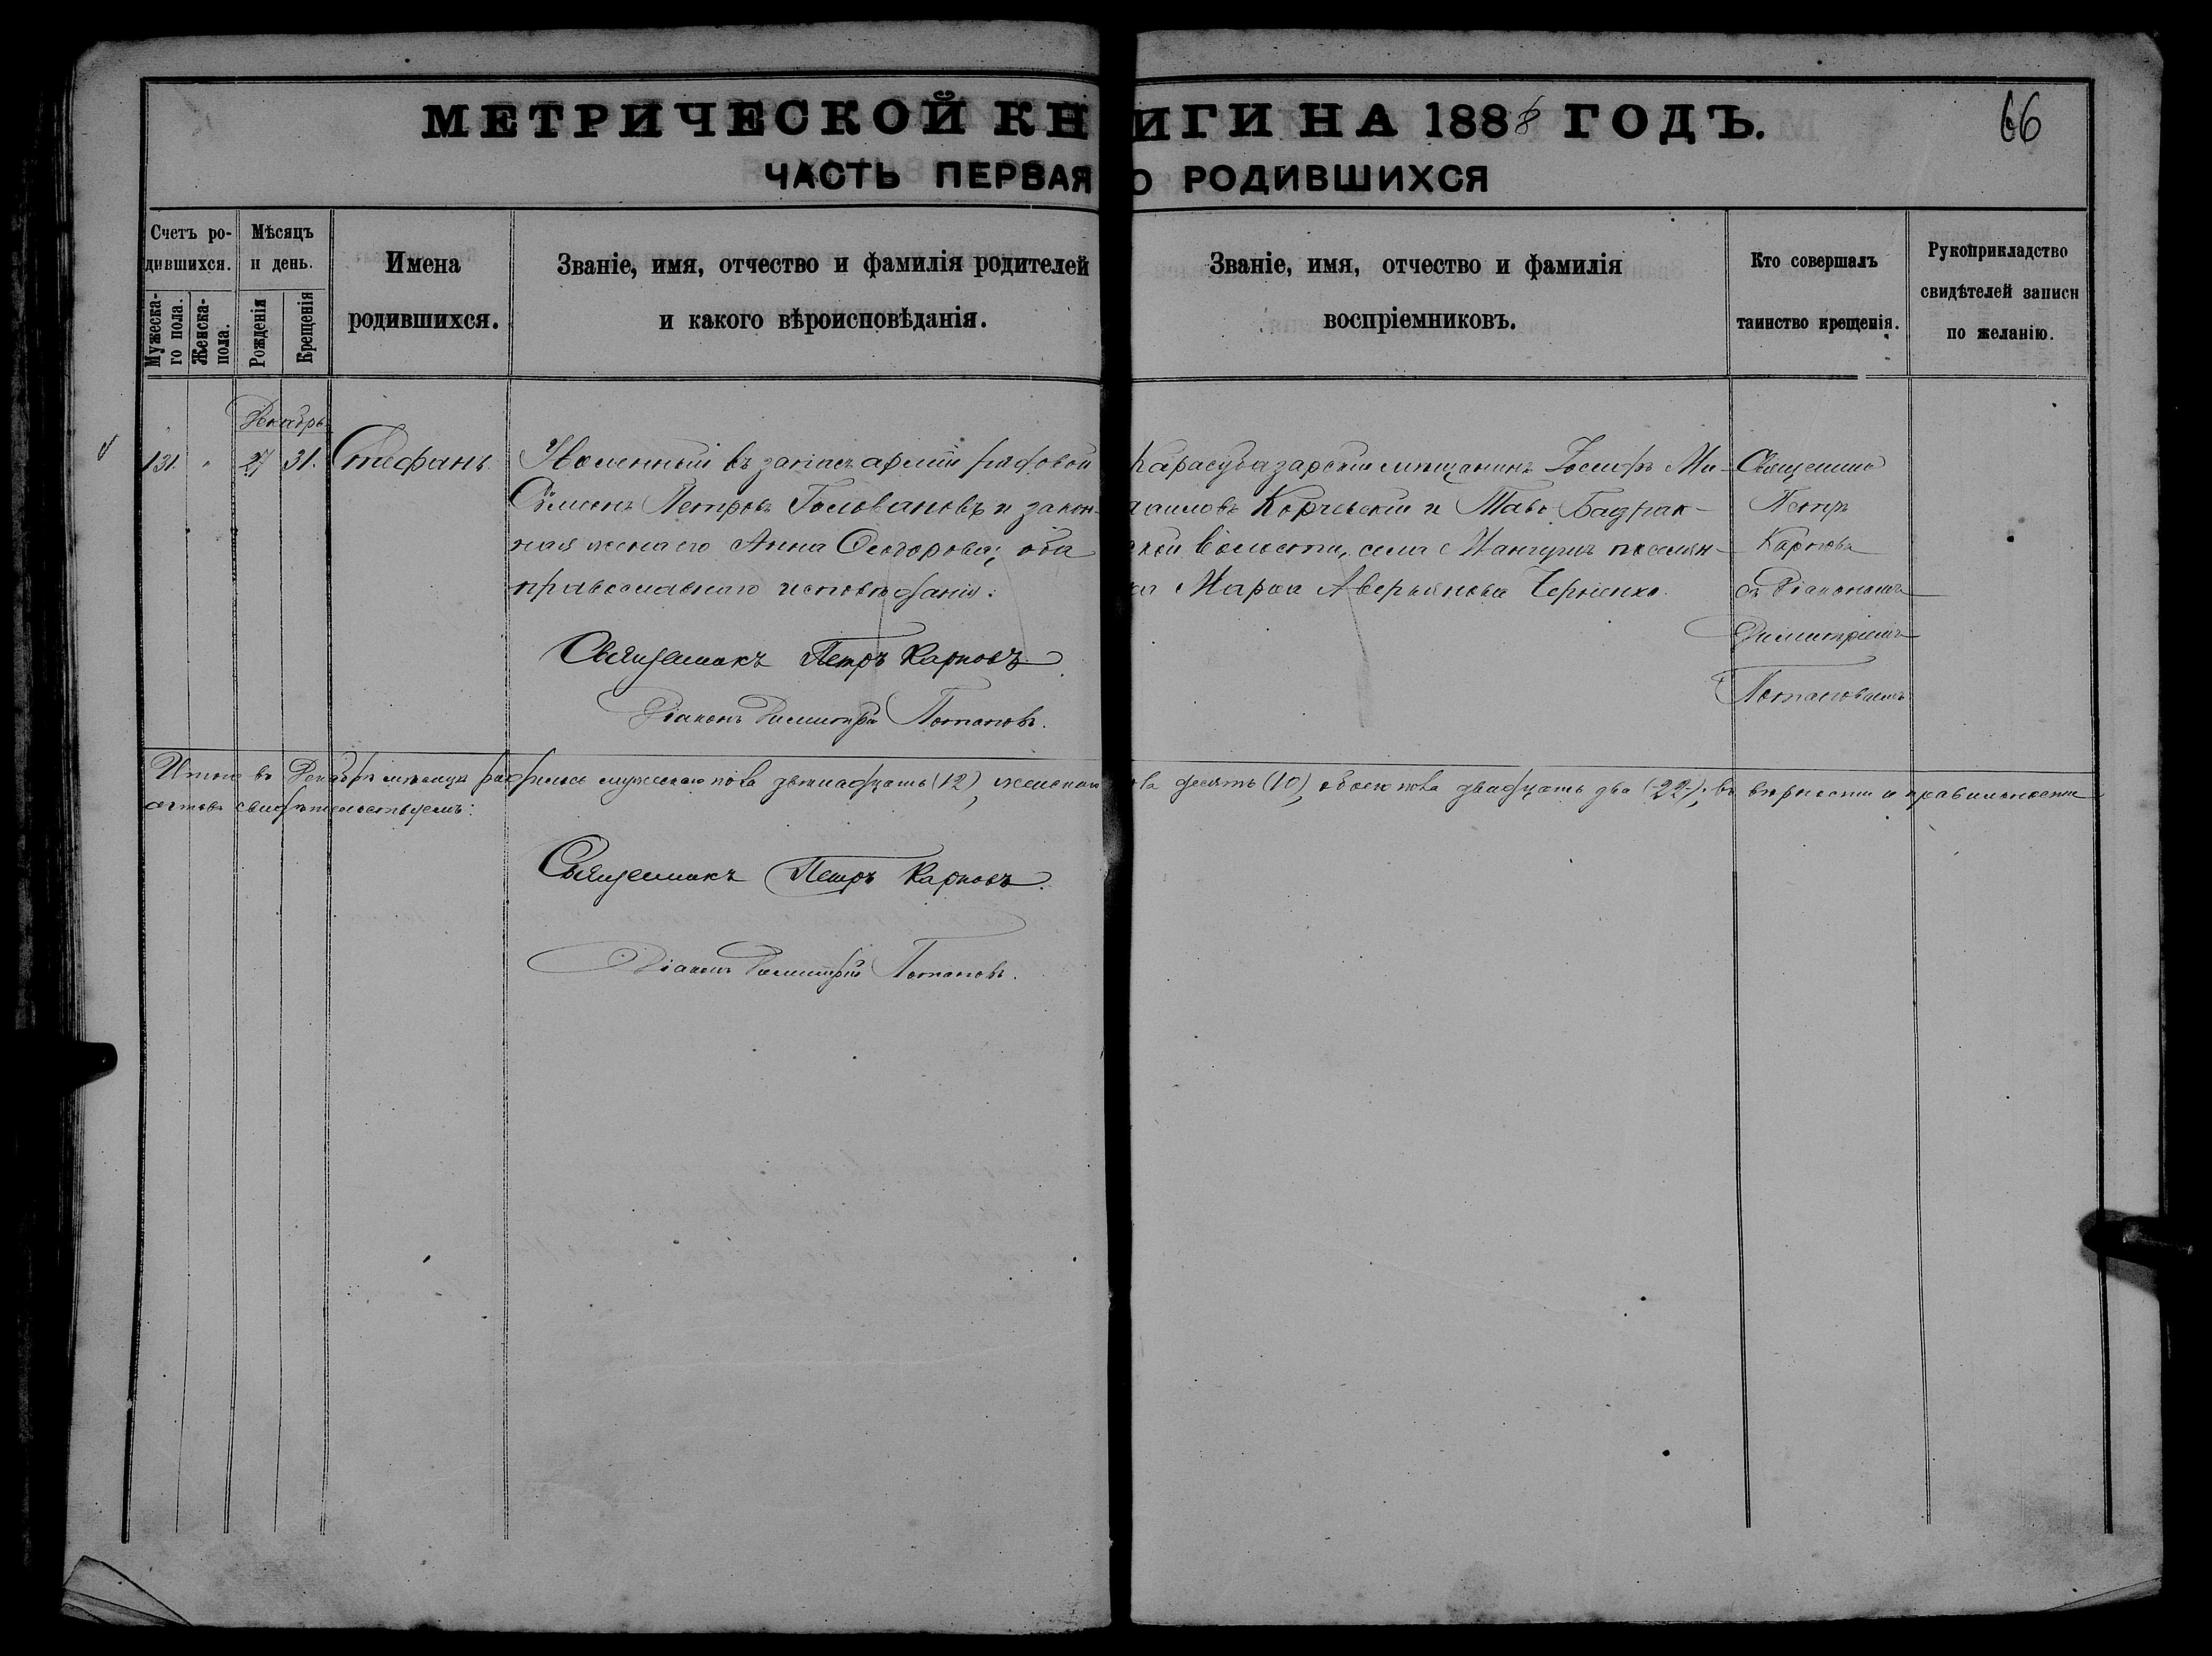 МЕТРИЧЕСКОЙ КНИГИ НА 1888 ГОДЪ.
66
ЧАСТЬ ПЕРВАЯ О РОДИВШИХСЯ
Счетъ родившихся.
Мужескаго пола.
Женска-пола.
Мѣсяцъ и день.
Рожденія
Крещенія
Имена родившихся.
Званіе, имя, отчество и фамилія родителей
и какого вѣроисповѣданія.
Званіе, имя, отчество и фамилія
воспріемниковъ.
Кто совершалъ
таинство крещенія.
Рукоприкладство
свидѣтелей записи
по желанію.
Декабрь
131. " 27 31. Стефанъ.
Уволенный въ запасъ арміи рядовой
Симеонъ Петровъ Головановъ и закон-
ная жена его Анна Ѳеодорова; оба
православнаго исповѣданія.
Священникъ Петръ Карповъ.
Діаконъ Димитрій Потаповъ.
Карасубазарскій мѣщанинъ Іосифъ Ми-
хаиловъ Корчевскій и Тавс. Бадрак-
ской волости, села Мангушъ поселян-
ка Марѳа Аверьянова Черненко.
Священникъ
Петръ
Карповъ
съ Діакономъ
Димитріемъ
Потаповымъ
Итого въ Декабрѣ мѣсяцѣ родилось мужескаго пола двѣнадцать (12), женскаго пола десять (10), обоего пола двадцать два (22); въ вѣрности и правильности
актовъ свидѣтельствуемъ:
Священникъ Петръ Карповъ.
Діаконъ Димитрій Потаповъ.